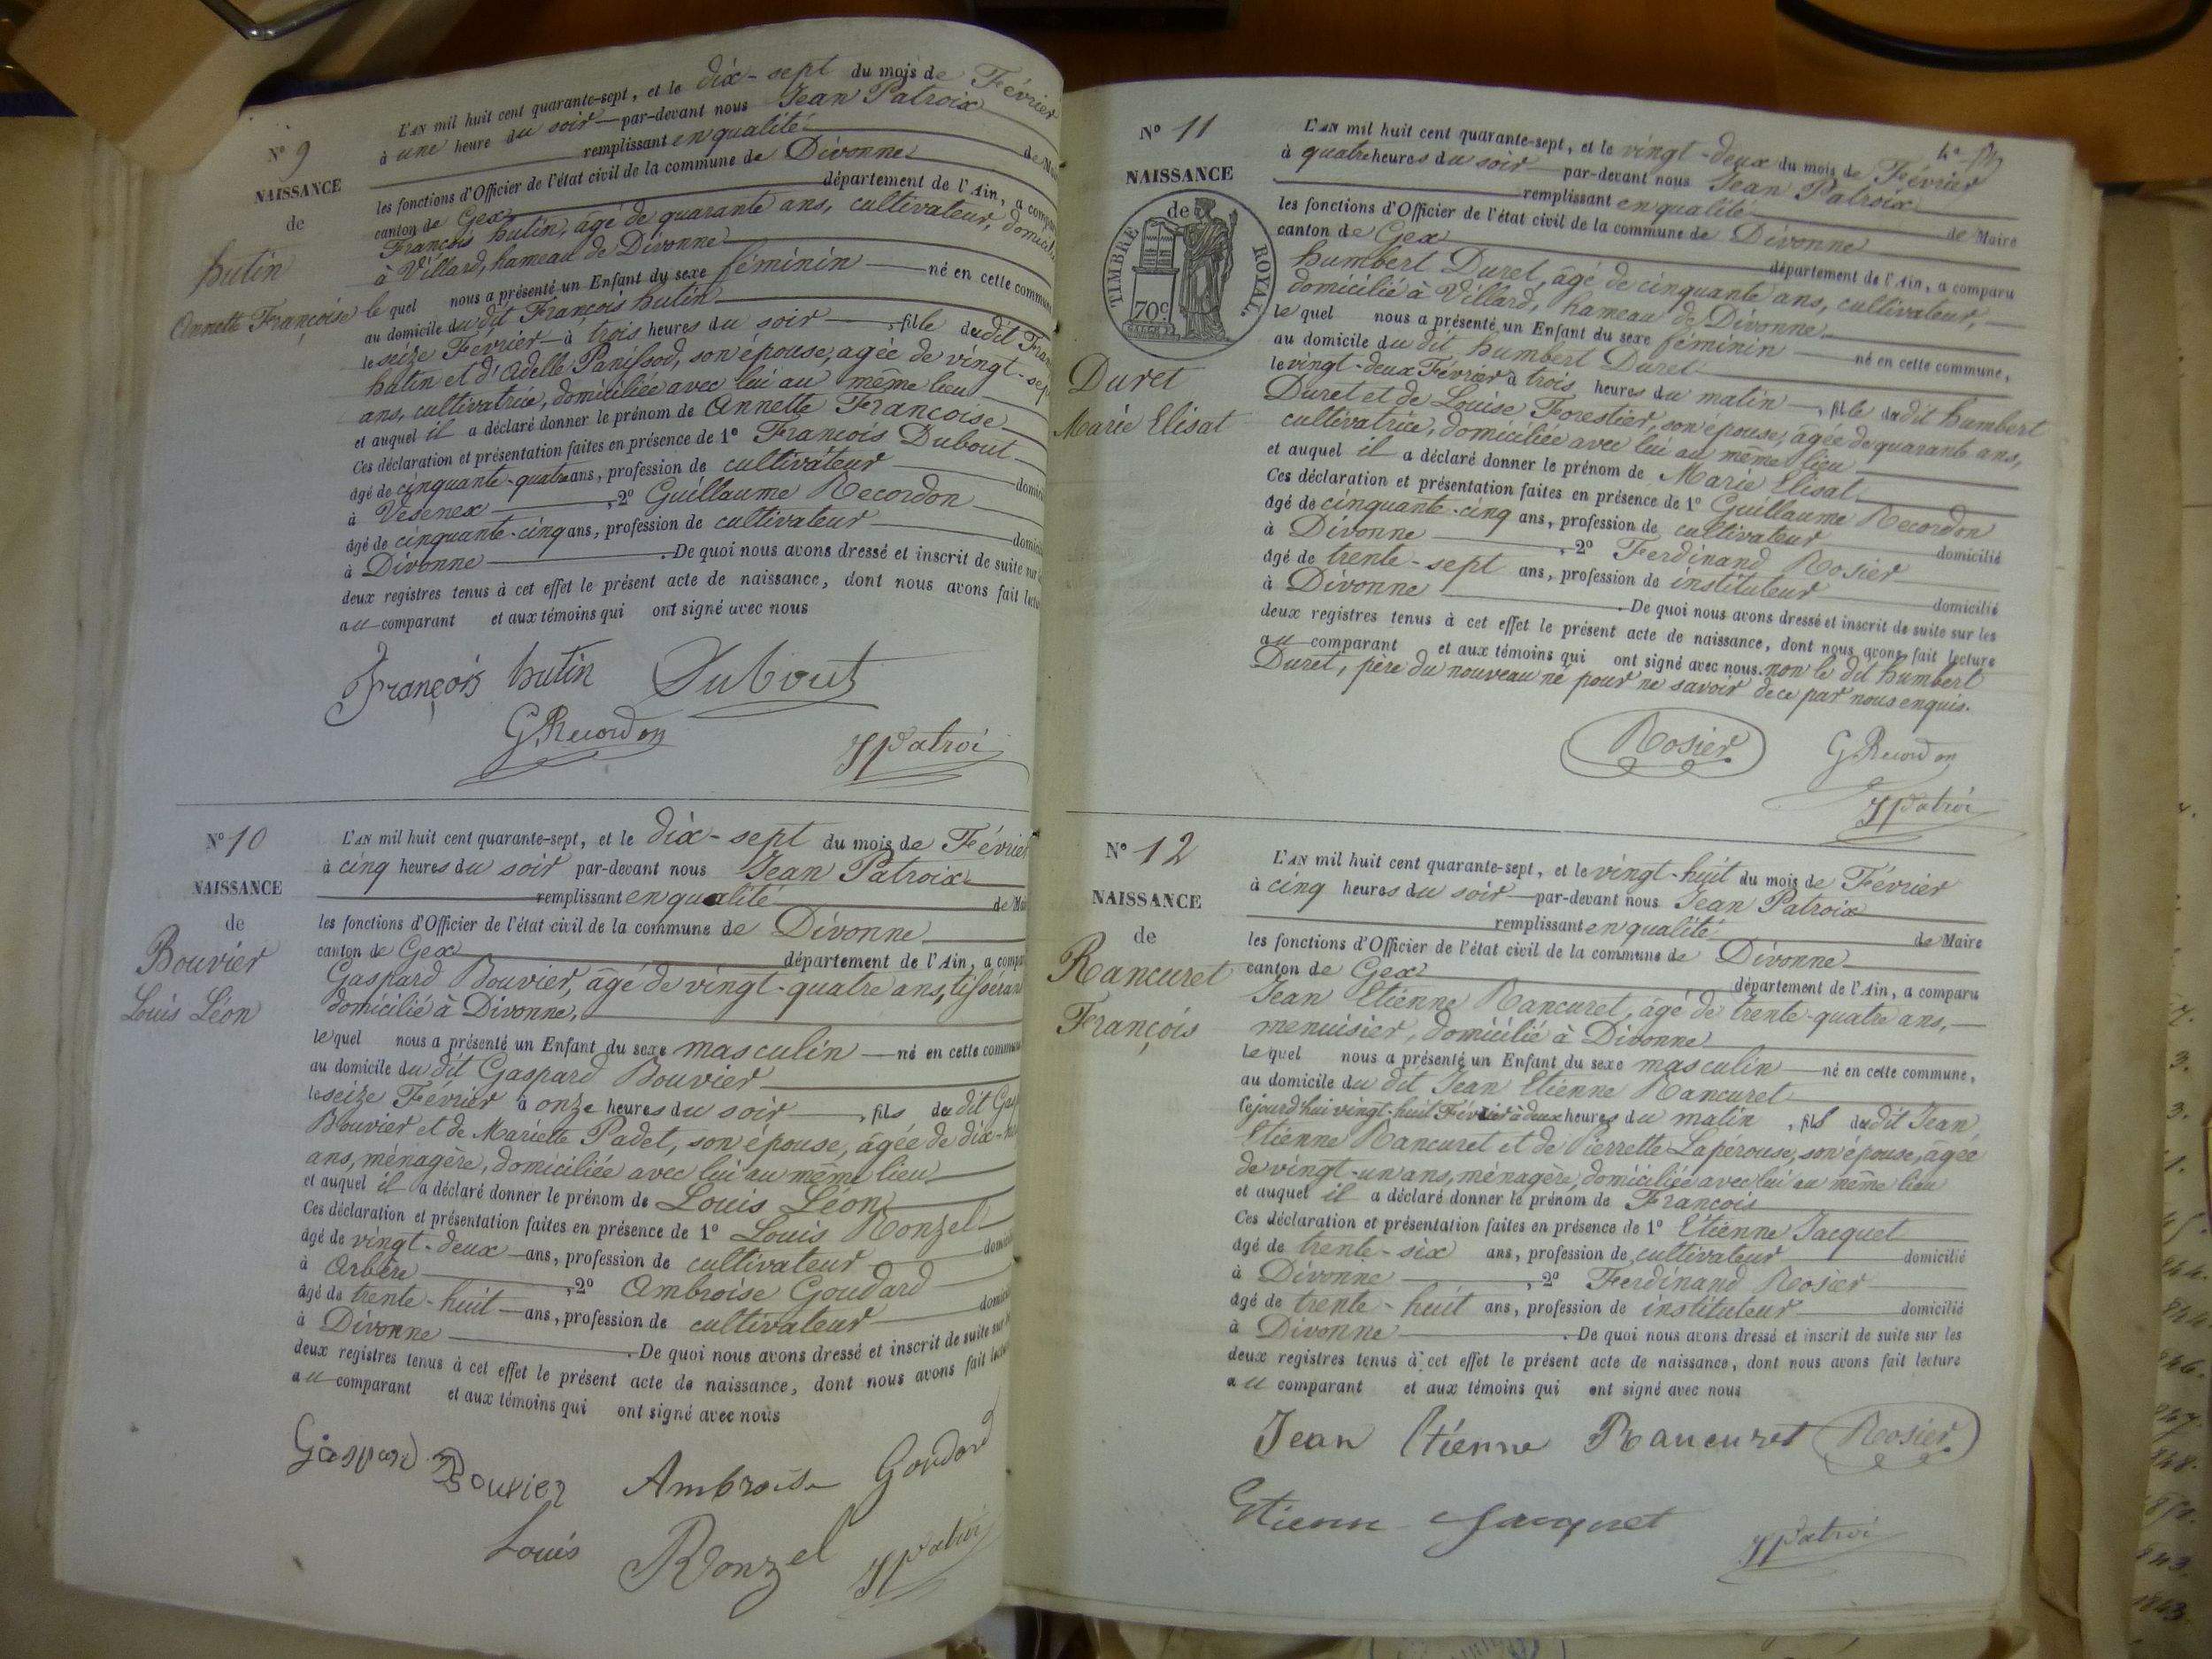 N° 9
NAISSANCE
de
hutin
Annette Françoise
L'AN mil huit cent quarante-sept, et le dix-sept du mois de Février
à une heure du soir par-devant nous Jean Patroix
remplissant en qualité de Mai
les fonctions d'Officier de l'état civil de la commune de Divonne
canton de Gex département de l'Ain, a compa
François hutin, âgé de quarante ans, cultivateur, domicil
à Villard, hameau de Divonne
le quel nous a présenté un Enfant du sexe féminin né en cette commun
au domicile du dit François hutin
le seize Février à trois heures du soir, fille du dit Fran
hutin et d'Adelle Panissod, son épouse, agée de vingt-sep
ans, cultivatrice, domiciliée avec lui au même lieu
et auquel il a déclaré donner le prénom de Annette Françoise
Ces déclaration et présentation faites en présence de 1° François Dubout
âgé de cinquante-quatre ans, profession de cultivateur domici
à Vesenex, 2° Guillaume Recordon
âgé de cinquante-cinq ans, profession de cultivateur domici
à Divonne. De quoi nous avons dressé et inscrit de suite sur
deux registres tenus à cet effet le présent acte de naissance, dont nous avons fait lectu
au comparant et aux témoins qui ont signé avec nous
François hutin Dubout
G. Recordon JPatroi
N° 10
NAISSANCE
de
Bouvier
Louis Léon
L'AN mil huit cent quarante-sept, et le dix-sept du mois de Février
à cinq heures du soir par-devant nous Jean Patroix
remplissant en qualité de Mai
les fonctions d'Officier de l'état civil de la commune de Divonne
canton de Gex département de l'Ain, a compa
Gaspard Bouvier, âgé de vingt-quatre ans, tisseran
domicilié à Divonne,
le quel nous a présenté un Enfant du sexe masculin né en cette commun
au domicile du dit Gaspard Bouvier
le seize Février à onze heures du soir, fils du dit Gas
Bouvier et de Mariette Padet, son épouse, âgée de dix-
ans, ménagère, domiciliée avec lui au même lieu
et auquel il a déclaré donner le prénom de Louis Léon
Ces déclaration et présentation faites en présence de 1° Louis Ronzel
âgé de vingt-deux ans, profession de cultivateur domici
à Arbère, 2° Ambroise Goudard
âgé de trente-huit ans, profession de cultivateur domici
à Divonne. De quoi nous avons dressé et inscrit de suite sur
deux registres tenus à cet effet le présent acte de naissance, dont nous avons fait lec
au comparant et aux témoins qui ont signé avec nous
Gaspard Bouvier Ambroise Goudard
Louis Ronzel JPatroi
N° 11
NAISSANCE
de
TIMBRE ROYAL.
70c
Duret
Marie Elisat
L'AN mil huit cent quarante-sept, et le vingt-deux du mois de Février
à quatre heures du soir par-devant nous Jean Patroix
remplissant en qualité de Maire
les fonctions d'Officier de l'état civil de la commune de Divonne
canton de Gex département de l'Ain, a comparu
humbert Duret, âgé de cinquante ans, cultivateur,
domicilié à Villard, hameau de Divonne
le quel nous a présenté un Enfant du sexe féminin né en cette commune,
au domicile du dit humbert Duret
le vingt-deux Février à trois heures du matin, fille du dit humbert
Duret et de Louise Forestier, son épouse, âgée de quarante ans,
cultivatrice, domiciliée avec lui au même lieu
et auquel il a déclaré donner le prénom de Marie Elisat
Ces déclaration et présentation faites en présence de 1° Guillaume Recordon
âgé de cinquante-cinq ans, profession de cultivateur domicilié
à Divonne, 2° Ferdinand Rosier
âgé de trente-sept ans, profession de instituteur domicilié
à Divonne. De quoi nous avons dressé et inscrit de suite sur les
deux registres tenus à cet effet le présent acte de naissance, dont nous avons fait lecture
au comparant et aux témoins qui ont signé avec nous. non le dit humbert
Duret, père du nouveau né pour ne savoir de ce par nous enquis.
Rosier G. Recordon
JPatroi
N° 12
NAISSANCE
de
Rancuret
François
L'AN mil huit cent quarante-sept, et le vingt-huit du mois de Février
à cinq heures du soir par-devant nous Jean Patroix
remplissant en qualité de Maire
les fonctions d'Officier de l'état civil de la commune de Divonne
canton de Gex département de l'Ain, a comparu
Jean Etienne Rancuret, âgé de trente-quatre ans,
menuisier, domicilié à Divonne
le quel nous a présenté un Enfant du sexe masculin né en cette commune,
au domicile du dit Jean Etienne Rancuret
cejourd'hui vingt-huit Février à deux heures du matin, fils du dit Jean
Etienne Rancuret et de Pierrette Lapérouse, son épouse, âgée
de vingt-un ans, ménagère, domiciliée avec lui au même lieu
et auquel il a déclaré donner le prénom de François
Ces déclaration et présentation faites en présence de 1° Etienne Jacquet
âgé de trente-six ans, profession de cultivateur domicilié
à Divonne, 2° Ferdinand Rosier
âgé de trente-huit ans, profession de instituteur domicilié
à Divonne. De quoi nous avons dressé et inscrit de suite sur les
deux registres tenus à cet effet le présent acte de naissance, dont nous avons fait lecture
au comparant et aux témoins qui ont signé avec nous
Jean Etienne Rancuret Rosier
Etienne Jacquet JPatroi